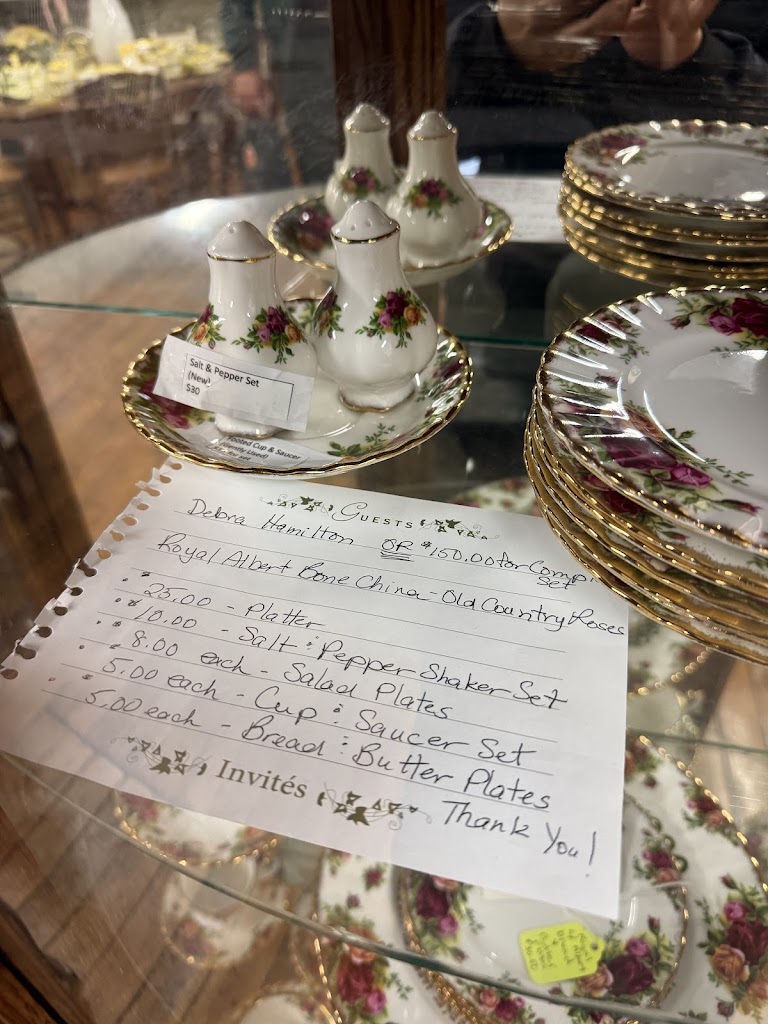 Salt & Pepper Set
(New)
$30
Footed Cup & Saucer
(Gently Used)
GUESTS
Debra Hamilton OR $150.00 for Comp
Set
Royal Albert Bone China - Old Country Roses
• $25.00 - Platter
• $10.00 - Salt & Pepper Shaker Set
• $8.00 each - Salad Plates
• $5.00 each - Cup & Saucer Set
• $5.00 each - Bread & Butter Plates
Invités
Thank You!